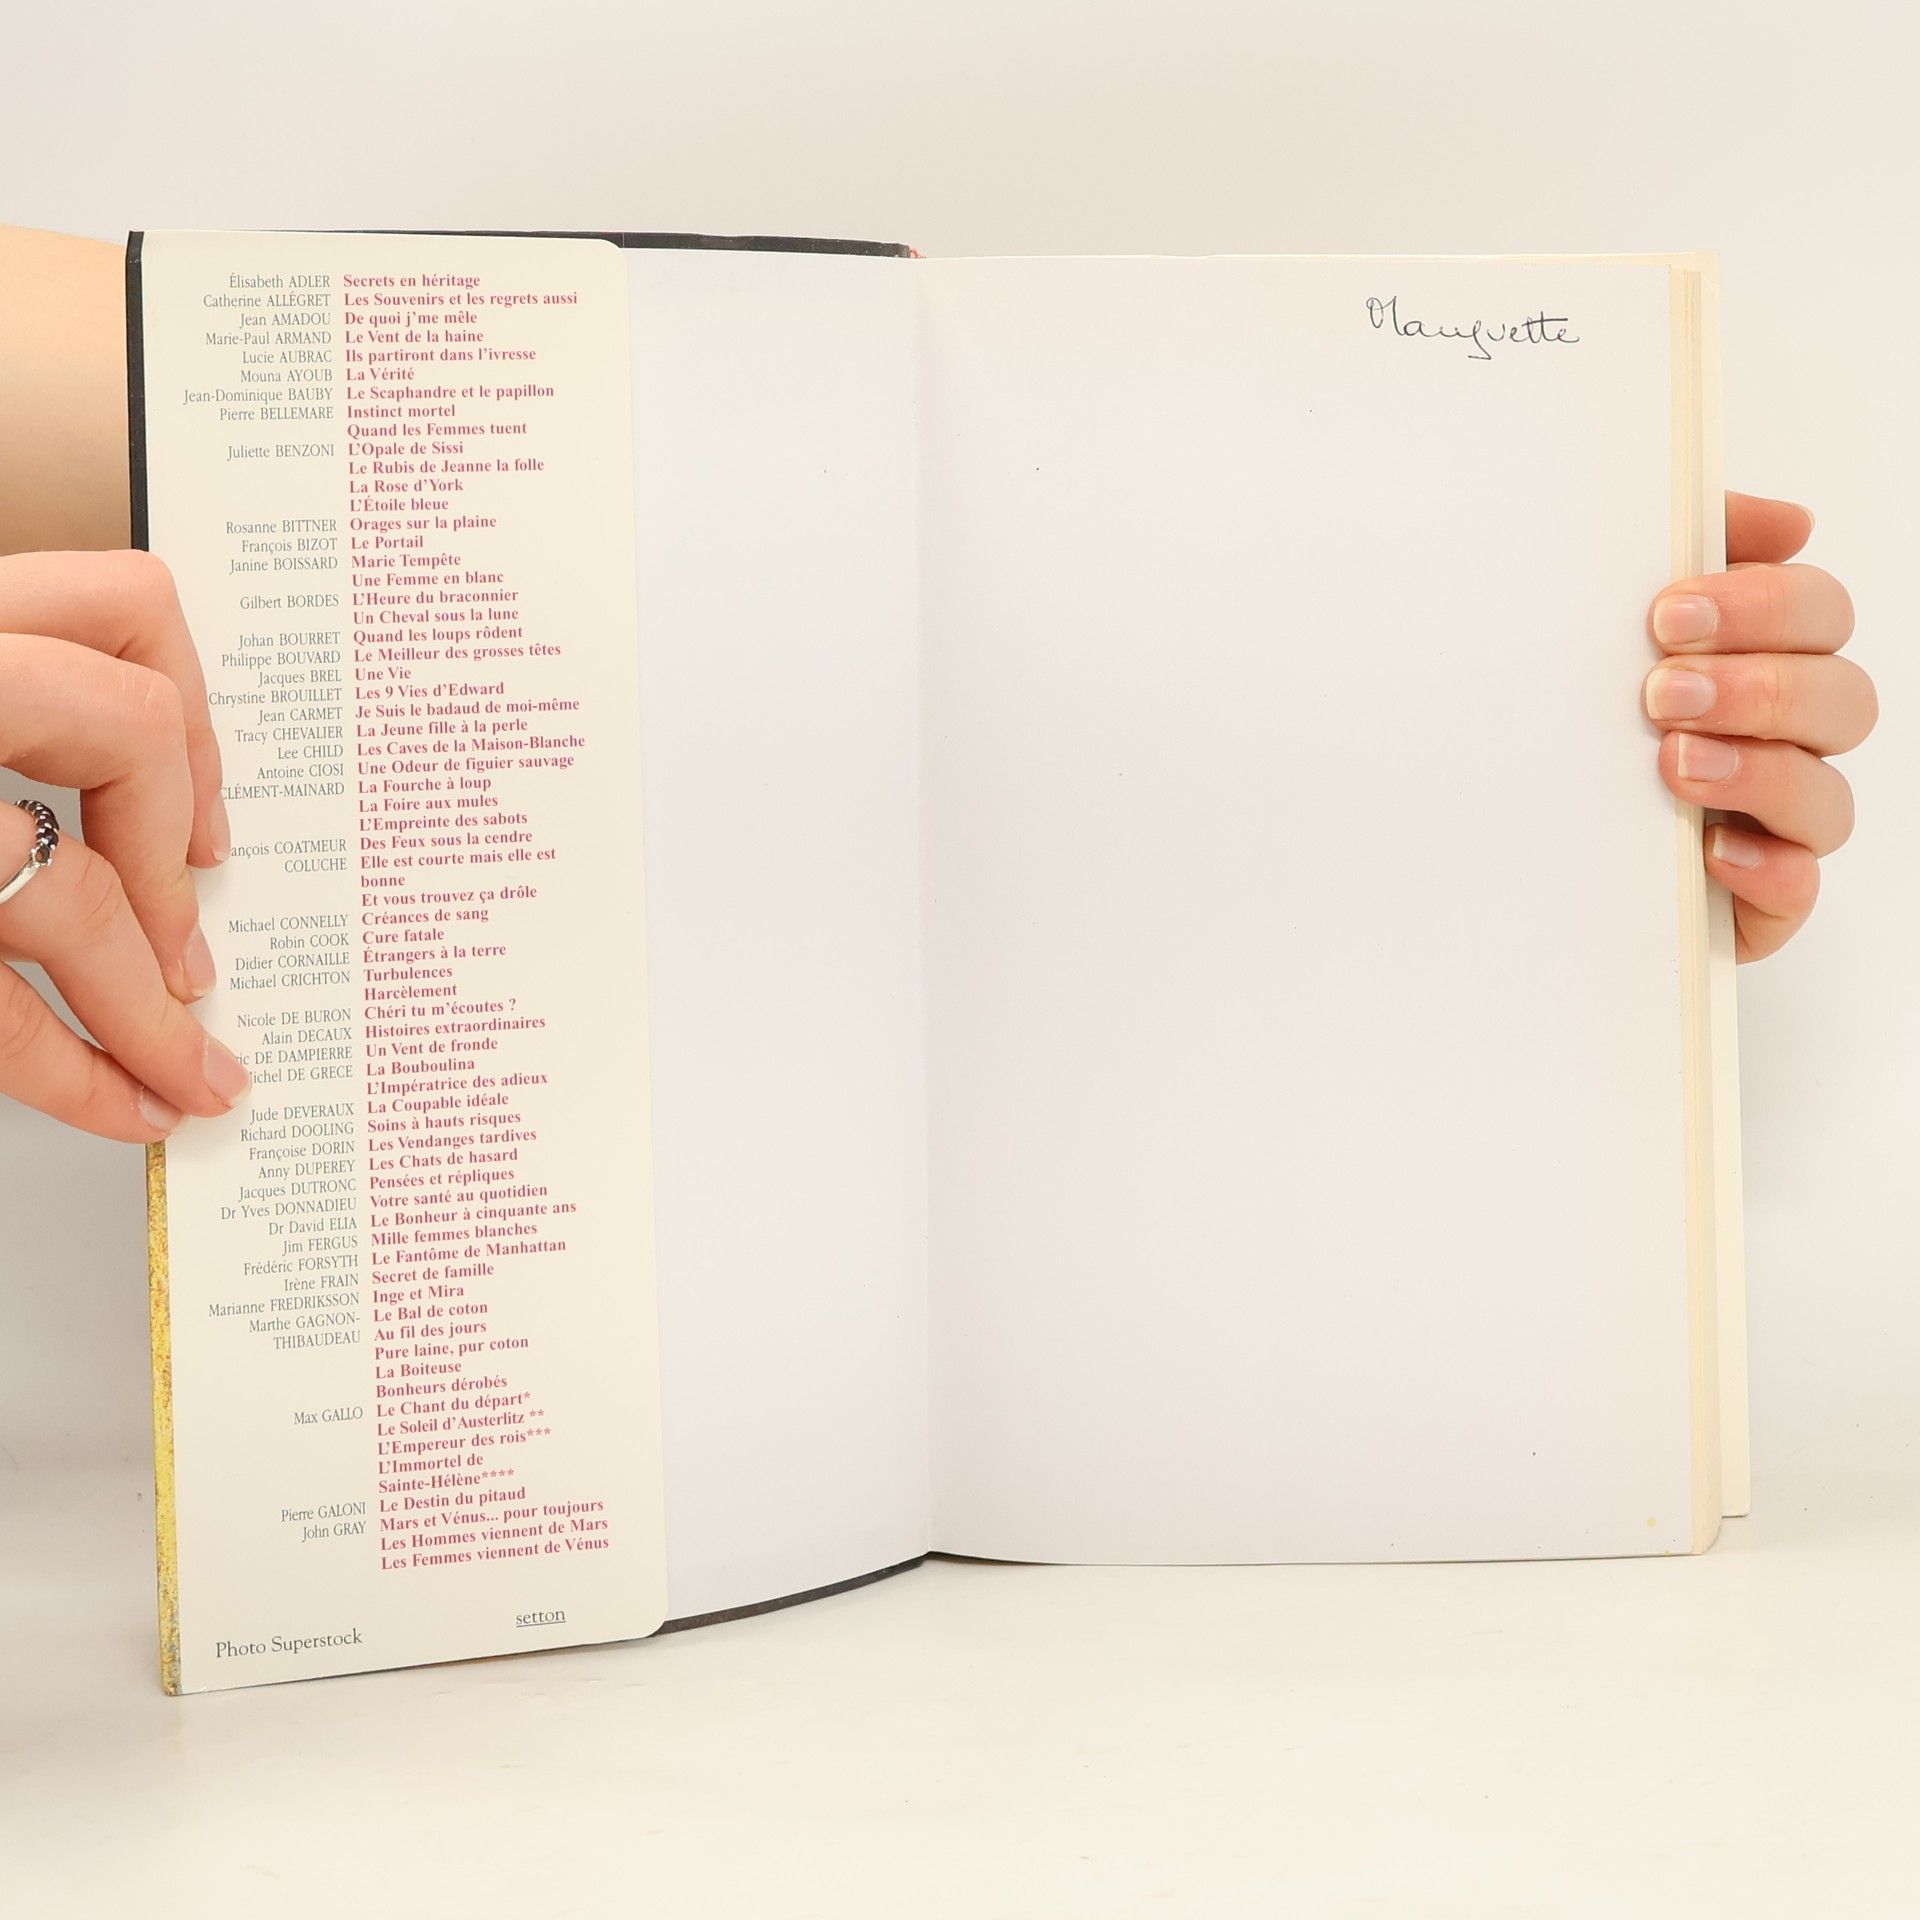 Élisabeth ADLER Secrets en héritage
Catherine ALLÉGRET Les Souvenirs et les regrets aussi
Jean AMADOU De quoi j'me mêle
Marie-Paul ARMAND Le Vent de la haine
Lucie AUBRAC Ils partiront dans l'ivresse
Mouna AYOUB La Vérité
Jean-Dominique BAUBY Le Scaphandre et le papillon
Pierre BELLEMARE Instinct mortel
Quand les Femmes tuent
Juliette BENZONI L'Opale de Sissi
Le Rubis de Jeanne la folle
La Rose d'York
L'Étoile bleue
Rosanne BITTNER Orages sur la plaine
François BIZOT Le Portail
Janine BOISSARD Marie Tempête
Une Femme en blanc
Gilbert BORDES L'Heure du braconnier
Un Cheval sous la lune
Johan BOURRET Quand les loups rôdent
Philippe BOUVARD Le Meilleur des grosses têtes
Jacques BREL Une Vie
Chrystine BROUILLET Les 9 Vies d'Edward
Jean CARMET Je Suis le badaud de moi-même
Tracy CHEVALIER La Jeune fille à la perle
Lee CHILD Les Caves de la Maison-Blanche
Antoine CIOSI Une Odeur de figuier sauvage
CLÉMENT-MAINARD La Fourche à loup
La Foire aux mules
L'Empreinte des sabots
ançois COATMEUR Des Feux sous la cendre
COLUCHE Elle est courte mais elle est
bonne
Et vous trouvez ça drôle
Michael CONNELLY Créances de sang
Robin COOK Cure fatale
Didier CORNAILLE Étrangers à la terre
Michael CRICHTON Turbulences
Harcèlement
Nicole DE BURON Chéri tu m'écoutes ?
Alain DECAUX Histoires extraordinaires
ric DE DAMPIERRE Un Vent de fronde
ichel DE GRECE La Bouboulina
L'Impératrice des adieux
Jude DEVERAUX La Coupable idéale
Richard DOOLING Soins à hauts risques
Françoise DORIN Les Vendanges tardives
Anny DUPEREY Les Chats de hasard
Jacques DUTRONC Pensées et répliques
Dr Yves DONNADIEU Votre santé au quotidien
Dr David ELIA Le Bonheur à cinquante ans
Jim FERGUS Mille femmes blanches
Frédéric FORSYTH Le Fantôme de Manhattan
Irène FRAIN Secret de famille
Marianne FREDRIKSSON Inge et Mira
Marthe GAGNON- Le Bal de coton
THIBAUDEAU Au fil des jours
Pure laine, pur coton
La Boiteuse
Bonheurs dérobés
Max GALLO Le Chant du départ*
Le Soleil d'Austerlitz **
L'Empereur des rois***
L'Immortel de
Sainte-Hélène****
Pierre GALONI Le Destin du pitaud
John GRAY Mars et Vénus... pour toujours
Les Hommes viennent de Mars
Les Femmes viennent de Vénus
setton
Photo Superstock